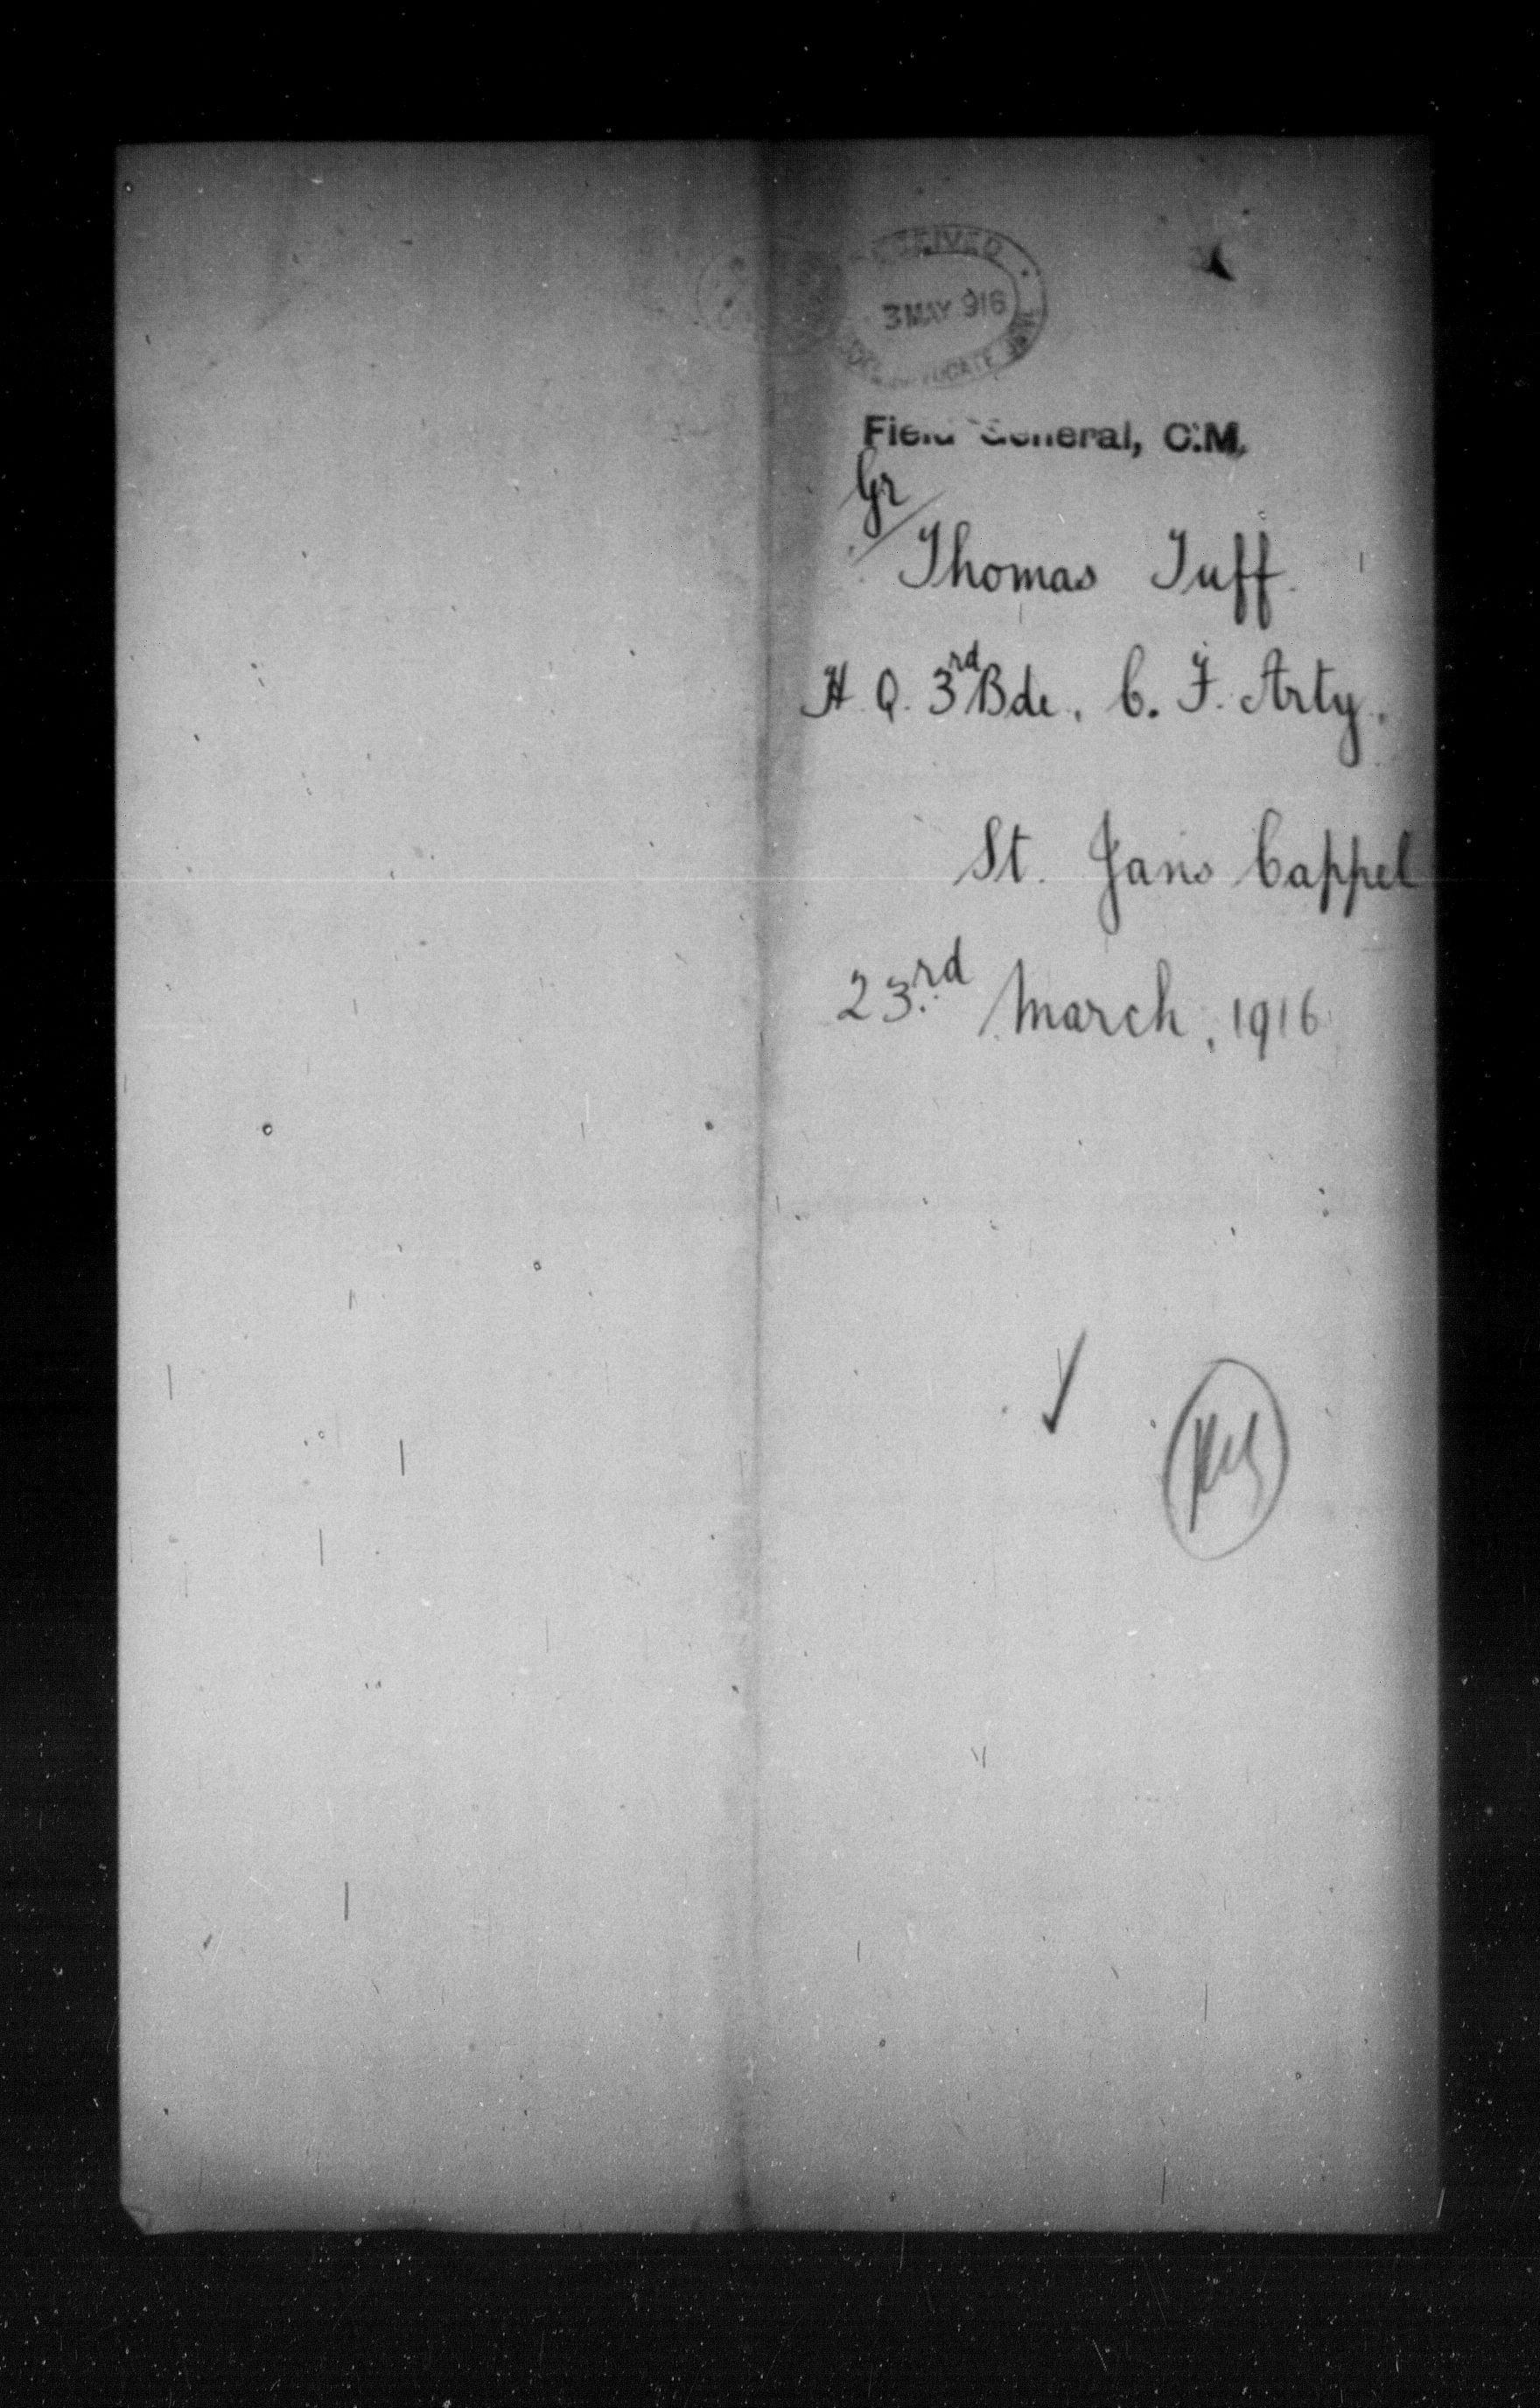 RECEIVED
3 MAY 916
JUDGE ADVOCATE
Field General, C.M.
Gr
Thomas Tuff.
H. Q. 3rd Bde. C. F. Arty.
St. Jans Cappel
23rd March, 1916